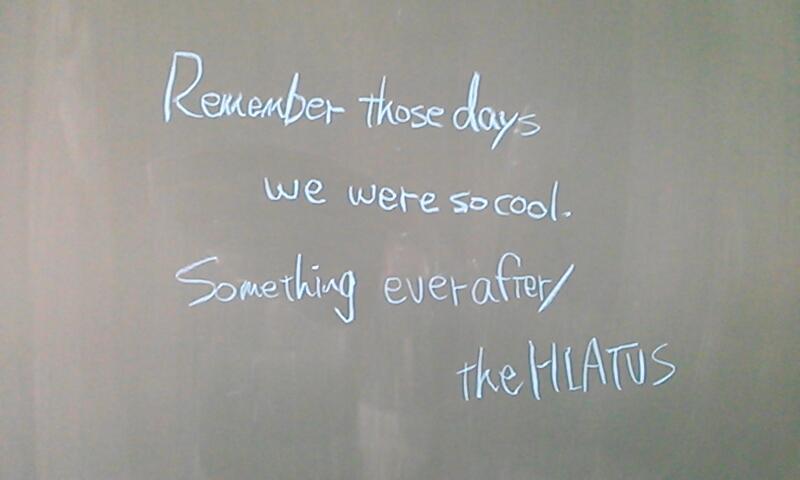 Remember those days
we were so cool.
Something ever after/
the HIATUS